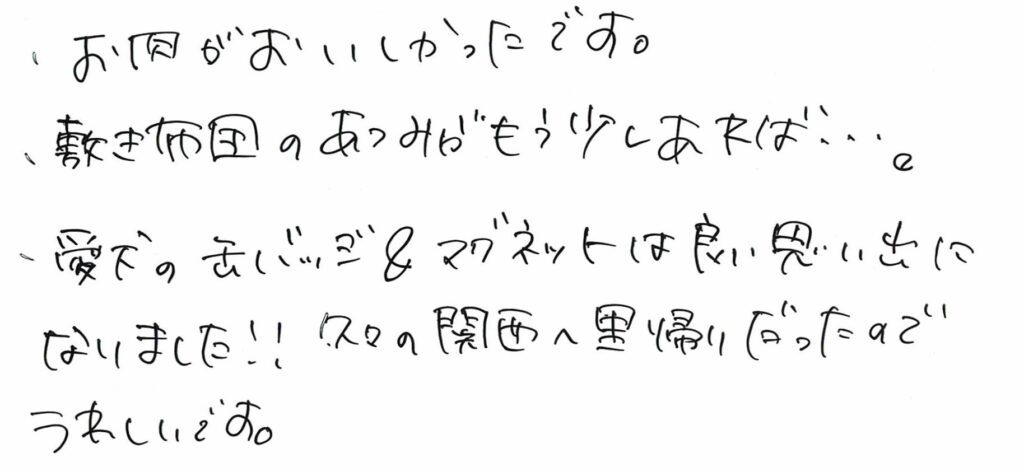 ・お肉がおいしかったです。
・敷き布団のあつみがもう少しあれば…。
・愛犬の缶バッジ&マグネットは良い思い出に
なりました!! 久々の関西へ里帰りだったので
うれしいです。